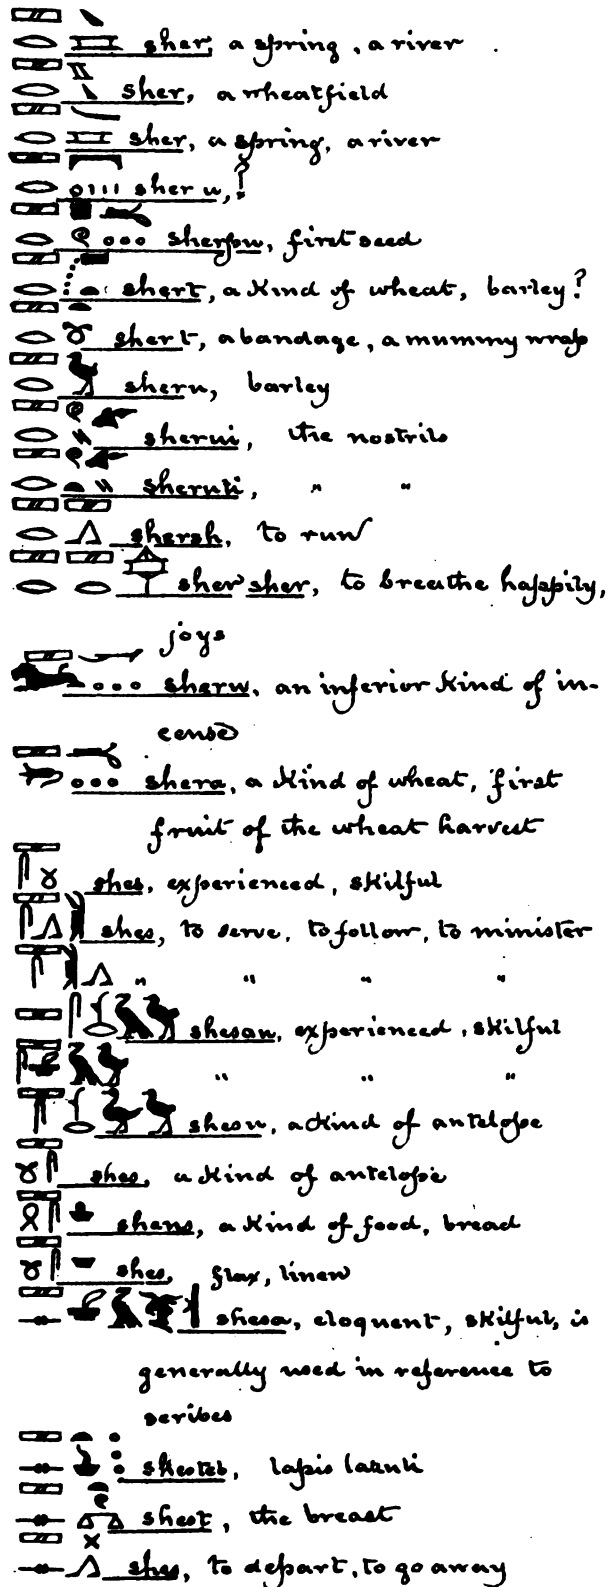 sher, a spring, a river
sher, a wheatfield
sher, a spring, a river
sher u, ?
sherpu, first seed
shert, a kind of wheat, barley?
shert, a bandage, a mummy wrap
sheru, barley
sherui, the nostrils
sheruti, " "
shersh, to run
sher sher, to breathe happily,
joys
sheru, an inferior kind of in-
cense
shera, a kind of wheat, first
fruit of the wheat harvest
shes, experienced, skilful
shes, to serve, to follow, to minister
" " " "
shesau, experienced, skilful
" " "
shesu, a kind of antelope
shes, a kind of antelope
shens, a kind of food, bread
shes, flax, linen
shesa, eloquent, skilful, is
generally used in reference to
scribes
lapis lazuli
shest, the breast
shes, to depart, to go away